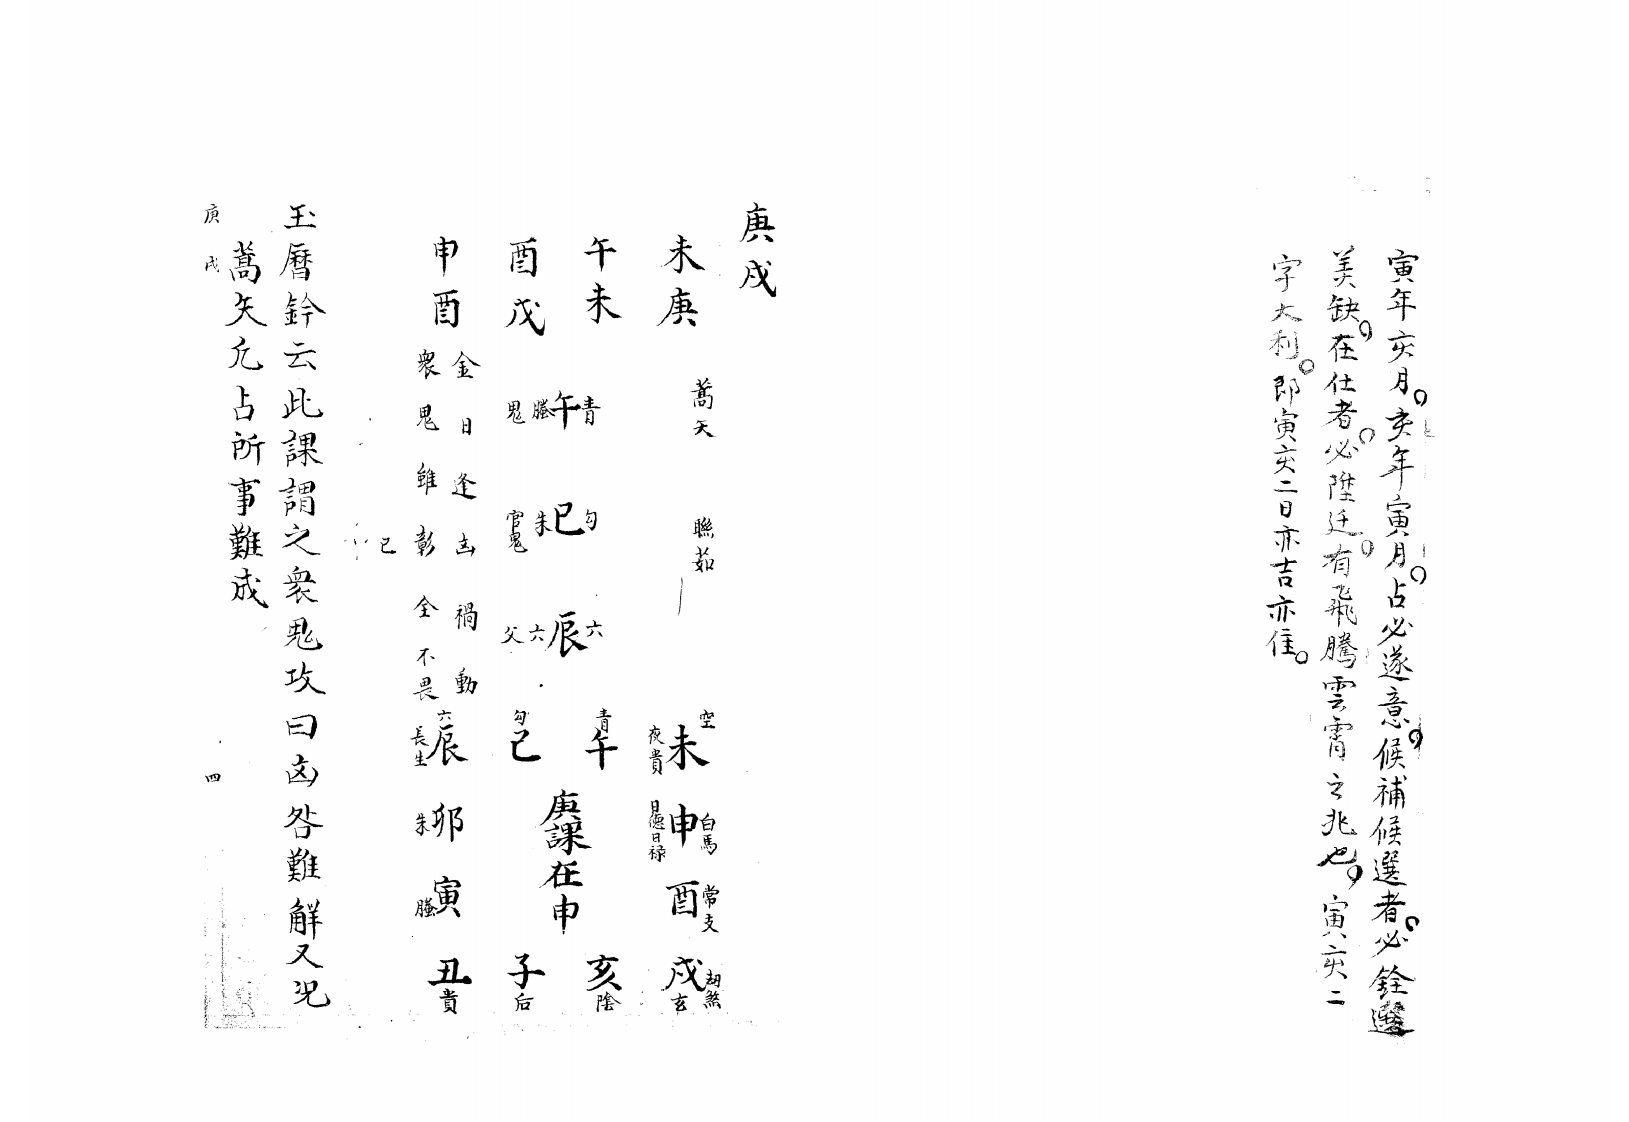 寅年亥月。亥年寅月。占必遂意。候補候選者。必銓選
美缺。在仕者。必陞迁。有飛騰雲霄之兆也。寅亥二
字大利。即寅亥二日亦吉亦佳。
庚戌
未庚 蒿矢 聯茹
午未
酉戌
申酉
青午螣鬼
勾巳朱官鬼
六辰六父
金日逢凶禍動
衆鬼雖彰全不畏
巳
空未夜貴
白馬申日德日禄
常支酉
戌玄
青午
亥陰
勾巳
子后
六辰長生
卯朱
寅螣
丑貴
庚課在申
玉曆鈐云此課謂之衆鬼攻曰凶咎難解又況
蒿矢凢占所事難成
庚戌 四